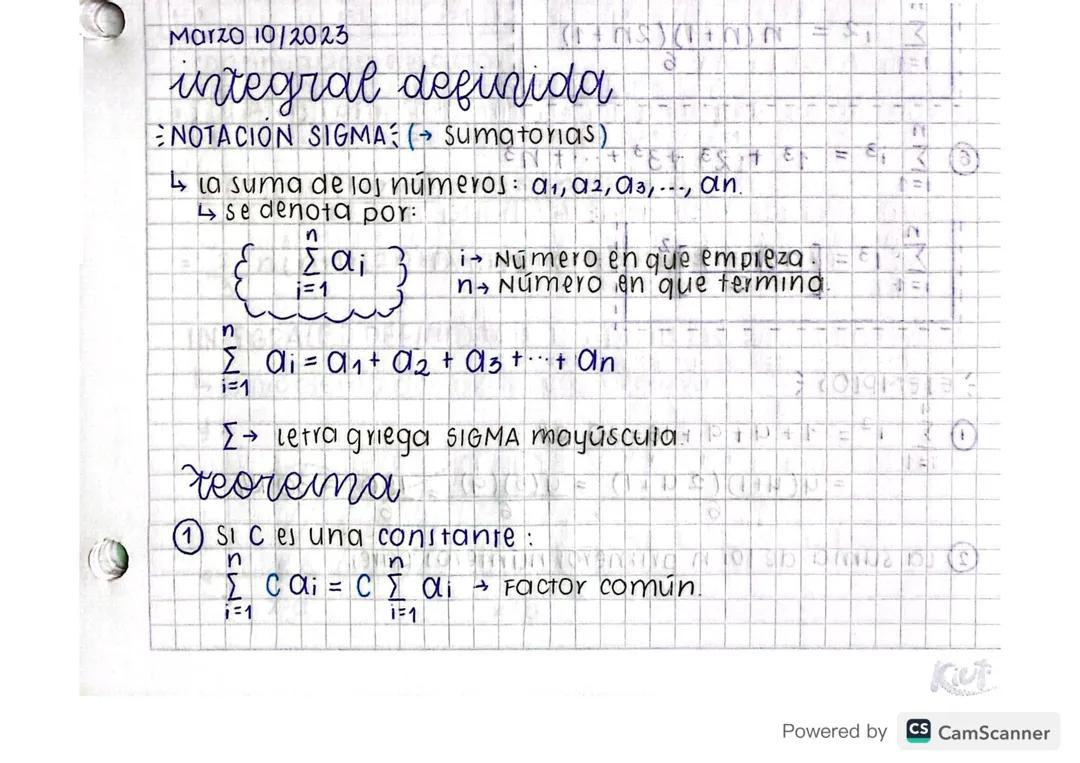 Marzo 10/2023
integral definida
NOTACIÓN SIGMA (→ sumatorias)
↳ la suma de los números: a₁, a₂, a₃, ..., an.
↳ se denota por:
n
Σ ai
i=1
i → Número en que empieza.
n → Número en que termina.
n
Σ ai = a₁ + a₂ + a₃ + ... + an
i=1
Σ → letra griega SIGMA mayúscula.
teorema
① Si C es una constante:
n n
Σ C ai = C Σ ai → Factor común.
i=1 i=1
Kiut
Powered by CS CamScanner